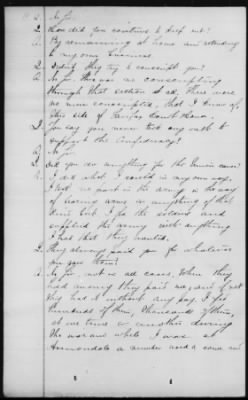 A. No sir.
Q. How did you continue to keep out?
A. By remaining at home and attending
to my own business.
Q. Didn't they try to conscript you?
A. No sir, there was no conscripting
through that section at all, there were
no men conscripted, that I know of
this side of Fairfax Court House.
Q. You say you never took any oath to
support the Confederacy?
A. No sir.
Q. Did you do anything for the Union cause?
A. I did what I could in my own way.
I took no part in the army in the way
of bearing arms or anything of that
kind but I fed the soldiers and
supplied the army with anything
I had that they wanted.
Q. They always paid you for whatever
you gave them?
A. No sir, not in all cases. When they
had money they paid me, and if not
they had it without any pay. I fed
hundreds of them, thousands of them,
at one time or another during
the war and while I was at
Annandale a number used a come and